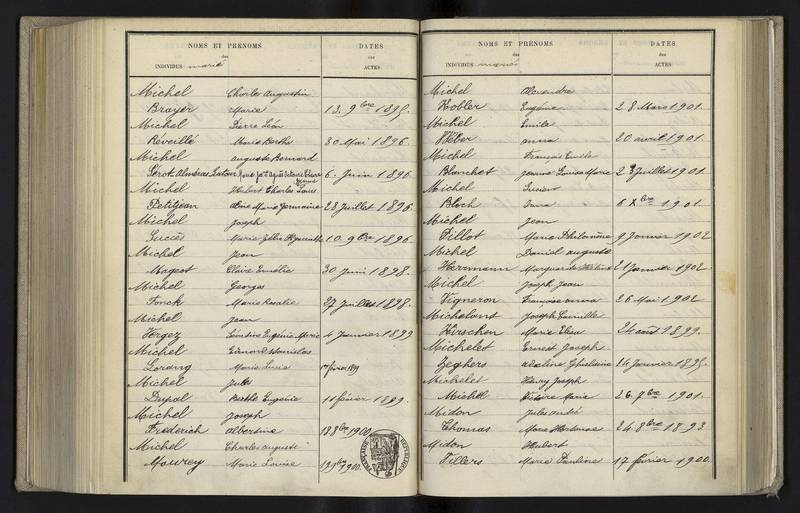 NOMS ET PRÉNOMS
des
INDIVIDUS mariés
DATES
des
ACTES
Michel Charles Augustin
Brayer Marie 13. 9bre 1895.
Michel Pierre Léon
Réveillé Marie Berthe 30 Mai 1896.
Michel Auguste Bernard
6. Juin 1896
Michel Hubert Charles Louis
Petitjean Marie Germaine 28 Juillet 1896
Michel Joseph
Marie 10. 9bre 1896
Michel Jean
Magest Claire 30 Juin 1898.
Michel Georges
Fonck Marie Rosalie 27 Juillet 1898.
Michel Jean
Vergez Léontine Eugénie Marie 4 Janvier 1899
Michel Edmond Stanislas
Lorang Marie Lucie février 1899
Michel Jules
Dupal Berthe Eugénie février 1899.
Michel Joseph
Frédérich Albertine 18 8bre 1900.
Michel Charles Auguste
Mourey Marie Louise 1900.
NOMS ET PRÉNOMS
des
INDIVIDUS mariés
DATES
des
ACTES
Michel Alexandre
Kobler Eugénie 28 Mars 1901.
Michel Emile
Wéber Anna 20 avril 1901.
Michel François Emile
Blanchet Jeanne Louise Marie Juillet 1901.
Michel Lucien
Bloch 6 Xbre 1901.
Michel Jean
Tillot Marie Philomène 9 Janvier 1902
Michel Daniel Auguste
Herrmann Marguerite 21 Janvier 1902.
Michel Joseph Jean
Vigneron Françoise Anna 26 Mai 1902
Michelant Joseph
Kirschen Marie Elisa 24 août 1899.
Michelet Ernest Joseph
Zeghers Adeline Ghislaine 14 Janvier 1895.
Michelet Henry Joseph
Michel Victoire Marie 26. 7bre 1901.
Midon Jules André
Thomas Marie 24. 8bre 1893
Midon Hubert
Villers Marie Pauline 17 février 1900.